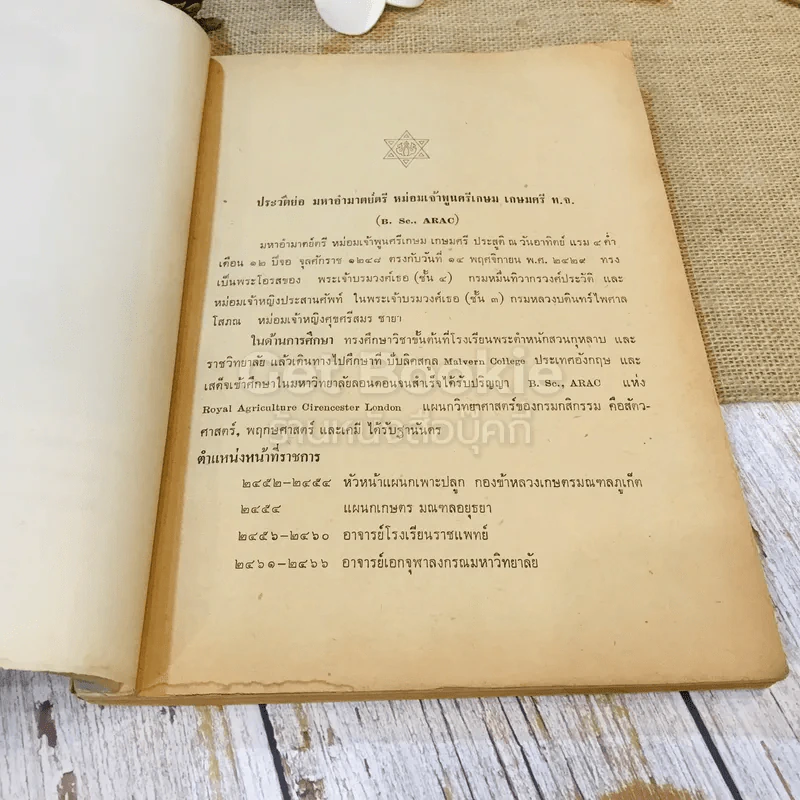 ประวัติย่อ มหาอำมาตย์ตรี หม่อมเจ้าพูนศรีเกษม เกษมศรี ท.จ.
(B. Sc., ARAC)
มหาอำมาตย์ตรี หม่อมเจ้าพูนศรีเกษม เกษมศรี ประสูติ ณ วันอาทิตย์ แรม ๔ ค่ำ
เดือน ๑๒ ปีจอ จุลศักราช ๑๒๔๘ ตรงกับวันที่ ๑๔ พฤศจิกายน พ.ศ. ๒๔๒๙ ทรง
เป็นพระโอรสของ พระเจ้าบรมวงศ์เธอ (ชั้น ๔) กรมหมื่นทิวากรวงศ์ประวัติ และ
หม่อมเจ้าหญิงประสานศัพท์ ในพระเจ้าบรมวงศ์เธอ (ชั้น ๓) กรมหลวงบดินทร์ไพศาล
โสภณ หม่อมเจ้าหญิงศุขศรีสมร ชายา
ในด้านการศึกษา ทรงศึกษาวิชาขั้นต้นที่โรงเรียนพระตำหนักสวนกุหลาบ และ
ราชวิทยาลัย แล้วเดินทางไปศึกษาที่ ปับลิคสกูล Malvern College ประเทศอังกฤษ และ
เสด็จเข้าศึกษาในมหาวิทยาลัยลอนดอนจนสำเร็จได้รับปริญญา B. Sc., ARAC แห่ง
Royal Agriculture Cirencester London แผนกวิทยาศาสตร์ของกรมกสิกรรม คือสัตว-
ศาสตร์, พฤกษศาสตร์ และเคมี ได้รับฐานันดร
ตำแหน่งหน้าที่ราชการ
๒๔๕๒-๒๔๕๔ หัวหน้าแผนกเพาะปลูก กองข้าหลวงเกษตรมณฑลภูเก็ต
๒๔๕๔ แผนกเกษตร มณฑลอยุธยา
๒๔๕๖-๒๔๖๐ อาจารย์โรงเรียนราชแพทย์
๒๔๖๑-๒๔๖๖ อาจารย์เอกจุฬาลงกรณมหาวิทยาลัย
Get Bookie
ร้านหนังสือบุ๊คกี้